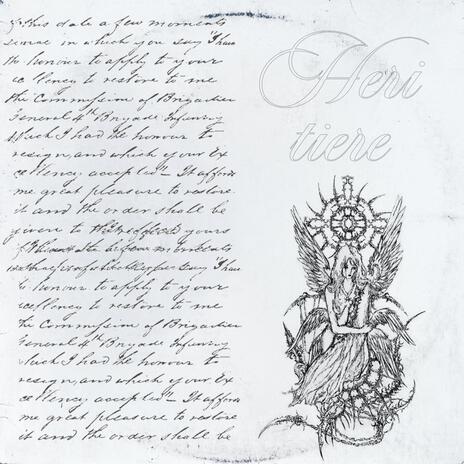 this date a few moments
in which you say "I have
the honour to apply to your
Excellency to restore to me
the Commission of Brigadier
General 4th Brigade Infantry
which I had the honour to
resign, and which your Ex
cellency accepted" It affords
me great pleasure to restore
it and the order shall be
given to yours
say "I have
honour to apply to your
Excellency to restore to me
the Commission of Brigadier
General 4th Brigade Infantry
which I had the honour to
resign, and which your Ex
cellency accepted" It affords
me great pleasure to restore
it and the order shall be
Heri
tiere